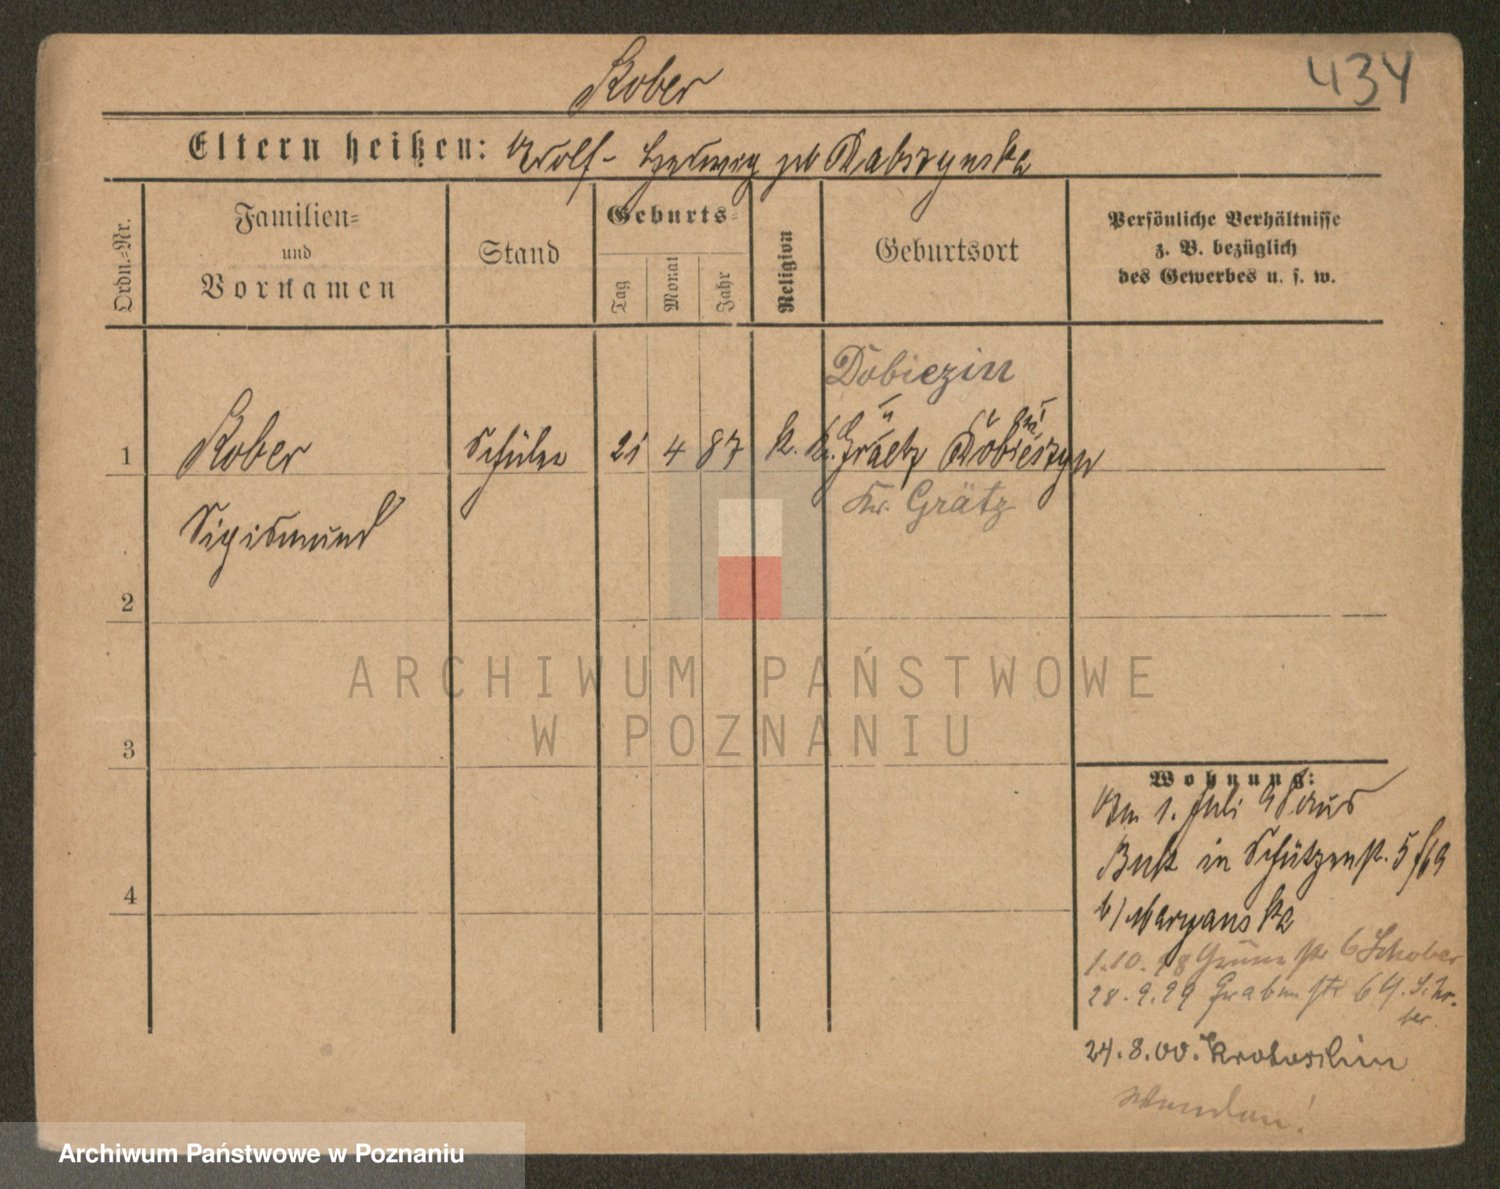 Kober
434
Eltern heißen: Adolf - Hedwig geb Dabrzynska
Ordn.-Nr.
Familien-
und
Vornamen
Stand
Geburts-
Tag
Monat
Jahr
Religion
Geburtsort
Persönliche Verhältnisse
z. B. bezüglich
des Gewerbes u. s. w.
Dobiezin
1 Kober Schüler 21 4 87 k. Kr. Graetz Dobieszyn
Kr. Grätz
Sigismund
2
3
4
Wohnung:
Am 1. Juli 98 aus
Buk in Schützenstr. 5
b/ Maryanska
1.10.98 Grünestr 6 Schober
28.9.99 Grabenstr 6
24.8.00. Krotoschin
Wenden!
ARCHIWUM PAŃSTWOWE
W POZNANIU
Archiwum Państwowe w Poznaniu